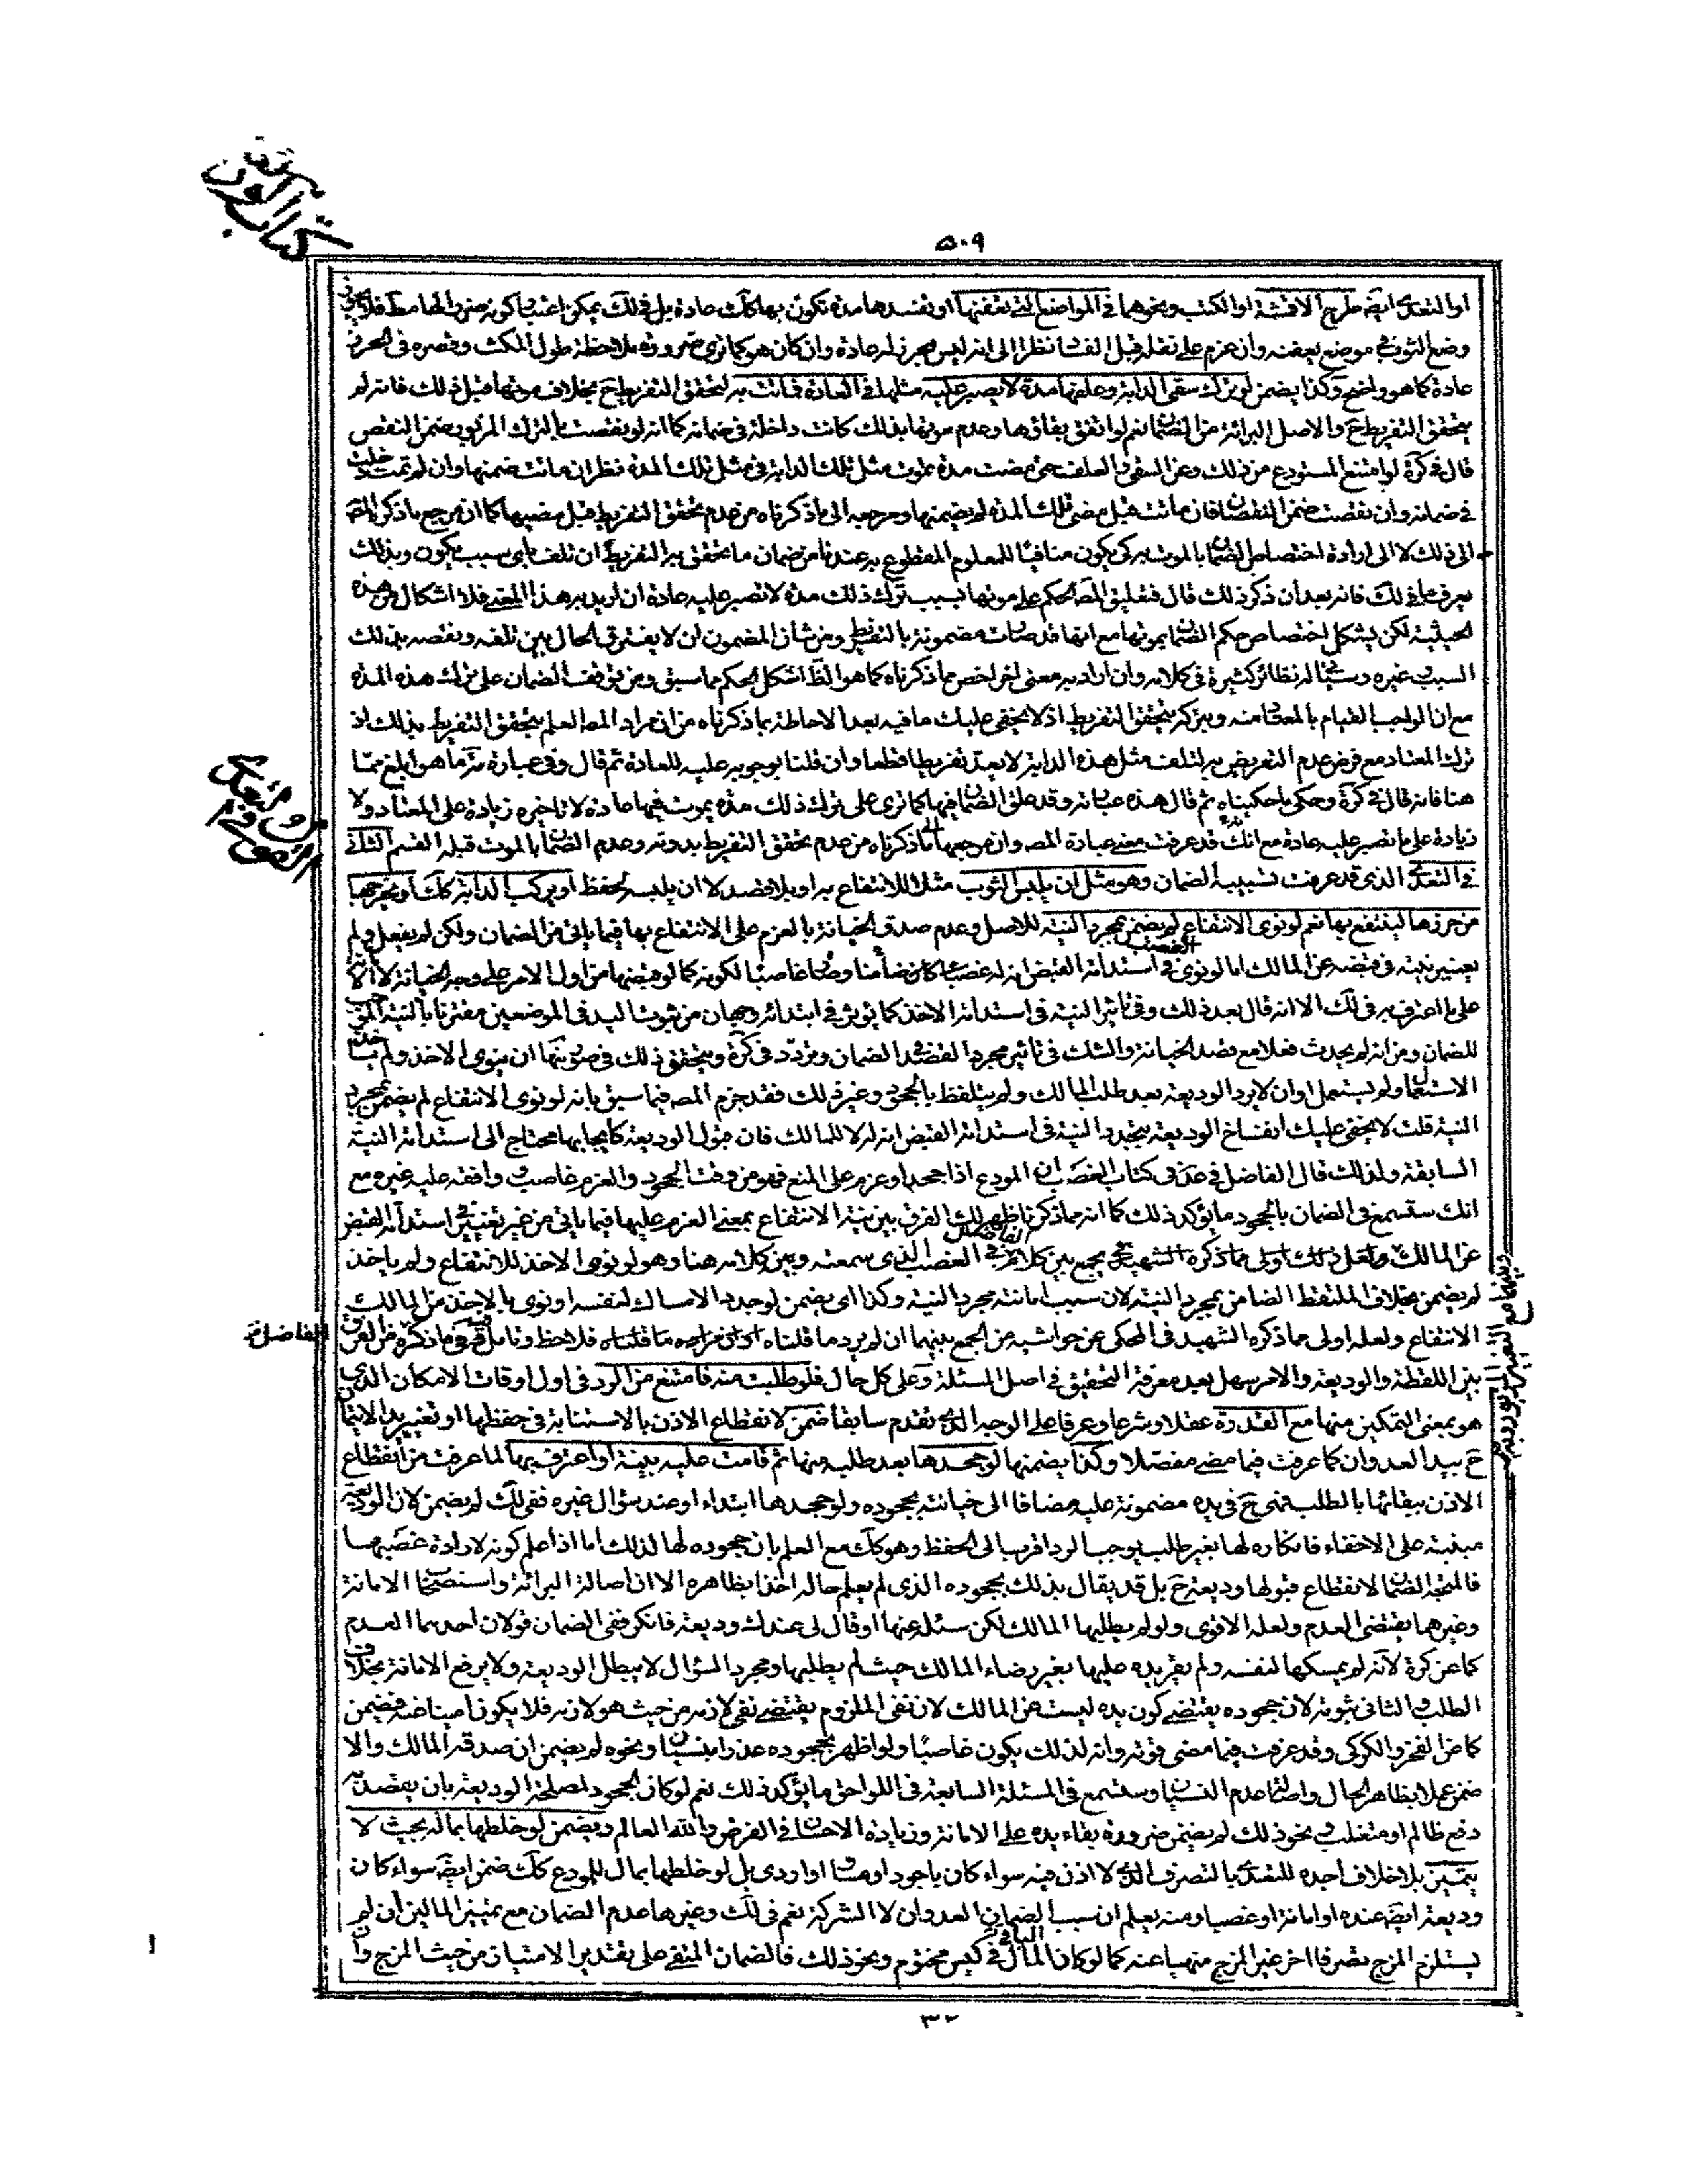 كتاب الوديعة
٥٠٩
او التعدى ايضا طرح الاقمشة او الكتب ونحوهما في المواضع التي تعفنها او تفسدها مدة تكون بها كذلك عادة بل في لك يمكن
وضع الثوب في موضع يعفنه وان عزم على نقله قبل الفساد نظرا الى انه ليس بحرز له عادة وان كان هو كما ترى ضرورة ملاحظة طول المكث وقصره في الحرز
عادة كما هو واضح وكذا يضمن لو ترك سقى الدابة وعلفها مدة لا يصبر عليه مثلها في العادة فماتت به لتحقق التفريط ح بخلاف موتها قبل ذلك فانه لم
يتحقق التفريط ح والاصل البرائة من الضمان نعم لو اتفق بقاؤها وعدم موتها بذلك كانت داخلة في ضمانه كما انه لو نقصت بالترك المزبور ضمن النقص
قال في كرة لو امتنع المستودع من ذلك وعن السقى والعلف حتى مضت مدة يموت مثل تلك الدابة في مثل تلك المدة نظر ان ماتت ضمنها وان لم تمت دخلت
في ضمانه وان نقصت ضمن النقصان فان ماتت قبل مضى تلك المدة لم يضمنها ومرجعه الى ما ذكرناه من عدم تحقق التفريط قبل مضيها كما ان مرجع ما ذكره المص
الى ذلك لا الى ارادة اختصاص الضمان بالموت به كي يكون منافيا للمعلوم المقطوع به عندنا من ضمان ما يتحقق به التفريط ان تلف باى سبب يكون وبذلك
يعرف ما في لك فانه بعد ان ذكر ذلك قال فتعليق المص الحكم على موتها بسبب ترك ذلك مدة لا تصبر عليه عادة ان اريد به هذا المعنى فلا اشكال من هذه
الحيثية لكن يشكل اختصاص حكم الضمان بموتها مع انها قد صارت مضمونة بالتفريط ومن شان المضمون ان لا يفترق الحال بين تلفه ونقصه بذلك
السبب وغيره وسياتي له نظائر كثيرة في كلامه وان اراد به معنى اخر اخص مما ذكرناه كما هو الظ اشكل الحكم مما سبق ومن توقف الضمان على ترك هذه المدة
مع ان الواجب القيام بالمعتاد منه وبتركه يتحقق التفريط اذ لا يخفى عليك ما فيه بعد الاحاطة بما ذكرناه من ان مراد المص العلم بتحقق التفريط بذلك اذ
ترك المعتاد مع فرض عدم التعريض به لتلف مثل هذه الدابة لا يعد تفريطا قطعا وان قلنا بوجوبه عليه للعادة ثم قال وفي عبارة كرة ما هو ابلغ مما
هنا فانه قال في كرة وحكى ما حكيناه ثم قال هذه عبارته وقد علق الضمان فيها كما ترى على ترك ذلك مدة يموت فيها عادة لا تاخيره زيادة على المعتاد ولا
زيادة على ما تصبر عليه عادة مع انك قد عرفت معنى عبارة المص وان مرجعها الى ما ذكرناه من عدم تحقق التفريط بدونه وعدم الضمان بالموت قبله القسم الثاني
في التعدى الذى قد عرفت تسبيبه الضمان وهو مثل ان يلبس الثوب مثلا للانتفاع به او بلا قصد لا ان يلبسه لحفظ او يركب الدابة كذلك او يخرجها
من حرزها لينتفع بها نعم لو نوى الانتفاع لم يضمن بمجرد النية للاصل وعدم صدق الخيانة بالعزم على الانتفاع بها فيما ياتى من الضمان ولكن لم يفعل ولم
يعتبر نيته في قبضه عن المالك اما لو نوى في استدامة القبض انه له غصبا كان ضامنا وصار غاصبا لكونه كما لو قبضها من اول الامر على وجه الخيانة
على ما اعترف به في لك الا انه قال بعد ذلك وفي تاثير النية في استدامة الاخذ كما يؤثر في ابتدائه وجهان من ثبوت اليد في الموضعين مقترنا بالنية الموجب
للضمان ومن انه لم يحدث فعلا مع قصد الخيانة والشك في تاثير مجرد القصد في الضمان وتردد في كرة ويتحقق ذلك في صور منها ان ينوى الاخذ ولم ياخذ
الاستعمال ولم يستعمل او ان لا يرد الوديعة بعد طلب المالك ولم يتلفظ بالجحود وغير ذلك فقد جزم المص فيما سبق بانه لو نوى الانتفاع لم يضمن بمجرد
النية قلت لا يخفى عليك انفساخ الوديعة بتجدد النية في استدامة القبض انه له لا للمالك فان قبول الوديعة كايجابها محتاج الى استدامة النية
السابقة ولذلك قال الفاضل في عد في كتاب الغصب ان المودع اذا جحد او عزم على المنع فهو من وقت الجحود والعزم غاصب ووافقه عليه غيره مع
انك ستسمع في الضمان بالجحود ما يؤكد ذلك كما انه مما ذكرنا ظهر لك الفرق بين نية الانتفاع بمعنى العزم عليها فيما ياتى من غير تغيير في استدامة القبض
عن المالك ولعل ذلك اولى مما ذكره الشهيد يجمع بين كلام الفاضل في الغصب الذى سمعته وبين كلامه هنا وهو لو نوى الاخذ للانتفاع ولم ياخذ
لم يضمن بخلاف الملتقط الضامن بمجرد النية لان سبب امانته مجرد النية وكذا اى يضمن لو جدد الامساك لنفسه او نوى بالاخذ من المالك
الانتفاع ولعله اولى مما ذكره الشهيد في المحكى عن حواشيه من الجمع بينهما ان لم يرد ما قلناه فلاحظ وتامل
بين اللقطة والوديعة والامر سهل بعد معرفة التحقيق في اصل المسئلة وعلى كل حال فلو طلبت منه فامتنع من الرد في اول اوقات الامكان الذى
هو بمعنى التمكين منها مع القدرة عقلا وشرعا وعرفا على الوجه الذى تقدم سابقا ضمن لانقطاع الاذن بالاستنابة في حفظها او تغيير يد الايتمان
ح بيد العدوان كما عرفت فيما مضى مفصلا وكذا يضمنها لو جحدها بعد طلبه منها ثم قامت عليه بينة او اعترف بها لما عرفت من انقطاع
الاذن ببقائها بالطلب فهى ح في يده مضمونة عليه مضافا الى خيانته بجحوده ولو جحدها ابتداء او عند سؤال غيره ففى لك لم يضمن لان الوديعة
مبنية على الاخفاء فانكاره لها بغير طلب يوجب الرد اقرب الى الحفظ وهو كذلك مع العلم بان جحوده لها لذلك اما اذا علم كونه لارادة غصبها
فالمتجه الضمان لانقطاع قبولها وديعة ح بل قد يقال بذلك بجحوده الذى لم يعلم حاله اخذا بظاهره الا ان اصالة البرائة واستصحاب الامانة
وغيرهما يقتضى العدم ولعله الاقوى ولو لم يطلبها المالك لكن سئله عنها او قال لى عندك وديعة فانكر ففى الضمان قولان احدهما العدم
كما عن كرة لانه لم يمسكها لنفسه ولم يقر يده عليها بغير رضاء المالك حيث لم يطلبها ومجرد السؤال لا يبطل الوديعة ولا يرفع الامانة بخلاف
الطلب والثانى ثبوته لان جحوده يقتضى كون يده ليست عن المالك لان نفى الملزوم يقتضى نفى لازمه من حيث هو لازمه فلا يكون امينا عنه فيضمن
كما عن الفخر والكركى وقد عرفت فيما مضى قوته وانه لذلك يكون غاصبا ولو اظهر بجحوده عذرا بنسيان ونحوه لم يضمن ان صدقه المالك والا
ضمن عملا بظاهر الحال واصالة عدم النسيان وستسمع في المسئلة السابعة في اللواحق ما يؤكد ذلك نعم لو كان الجحود لمصلحة الوديعة بان يقصد به
دفع ظالم او متغلب ونحو ذلك لم يضمن ضرورة بقاء يده على الامانة وزيادة الاحسان في الفرض والله العالم ويضمن لو خلطها بماله بحيث لا
يتميز بلا خلاف اجده للتعدى بالتصرف الذى لا اذن فيه سواء كان باجود او مساو او اردى بل لو خلطها بمال للمودع كذلك ضمن ايضا سواء كان
وديعة ايضا عنده او امانة او غصبا ومنه يعلم ان سبب الضمان العدوان لا الشركة نعم في لك وغيرها عدم الضمان مع تميز المالين ان لم
يستلزم المزج تصرفا اخر غير المزج منهيا عنه كما لو كان المال في كيس مختوم ونحو ذلك فالضمان المنفى على تقدير الامتياز من حيث المزج وان
٣٢